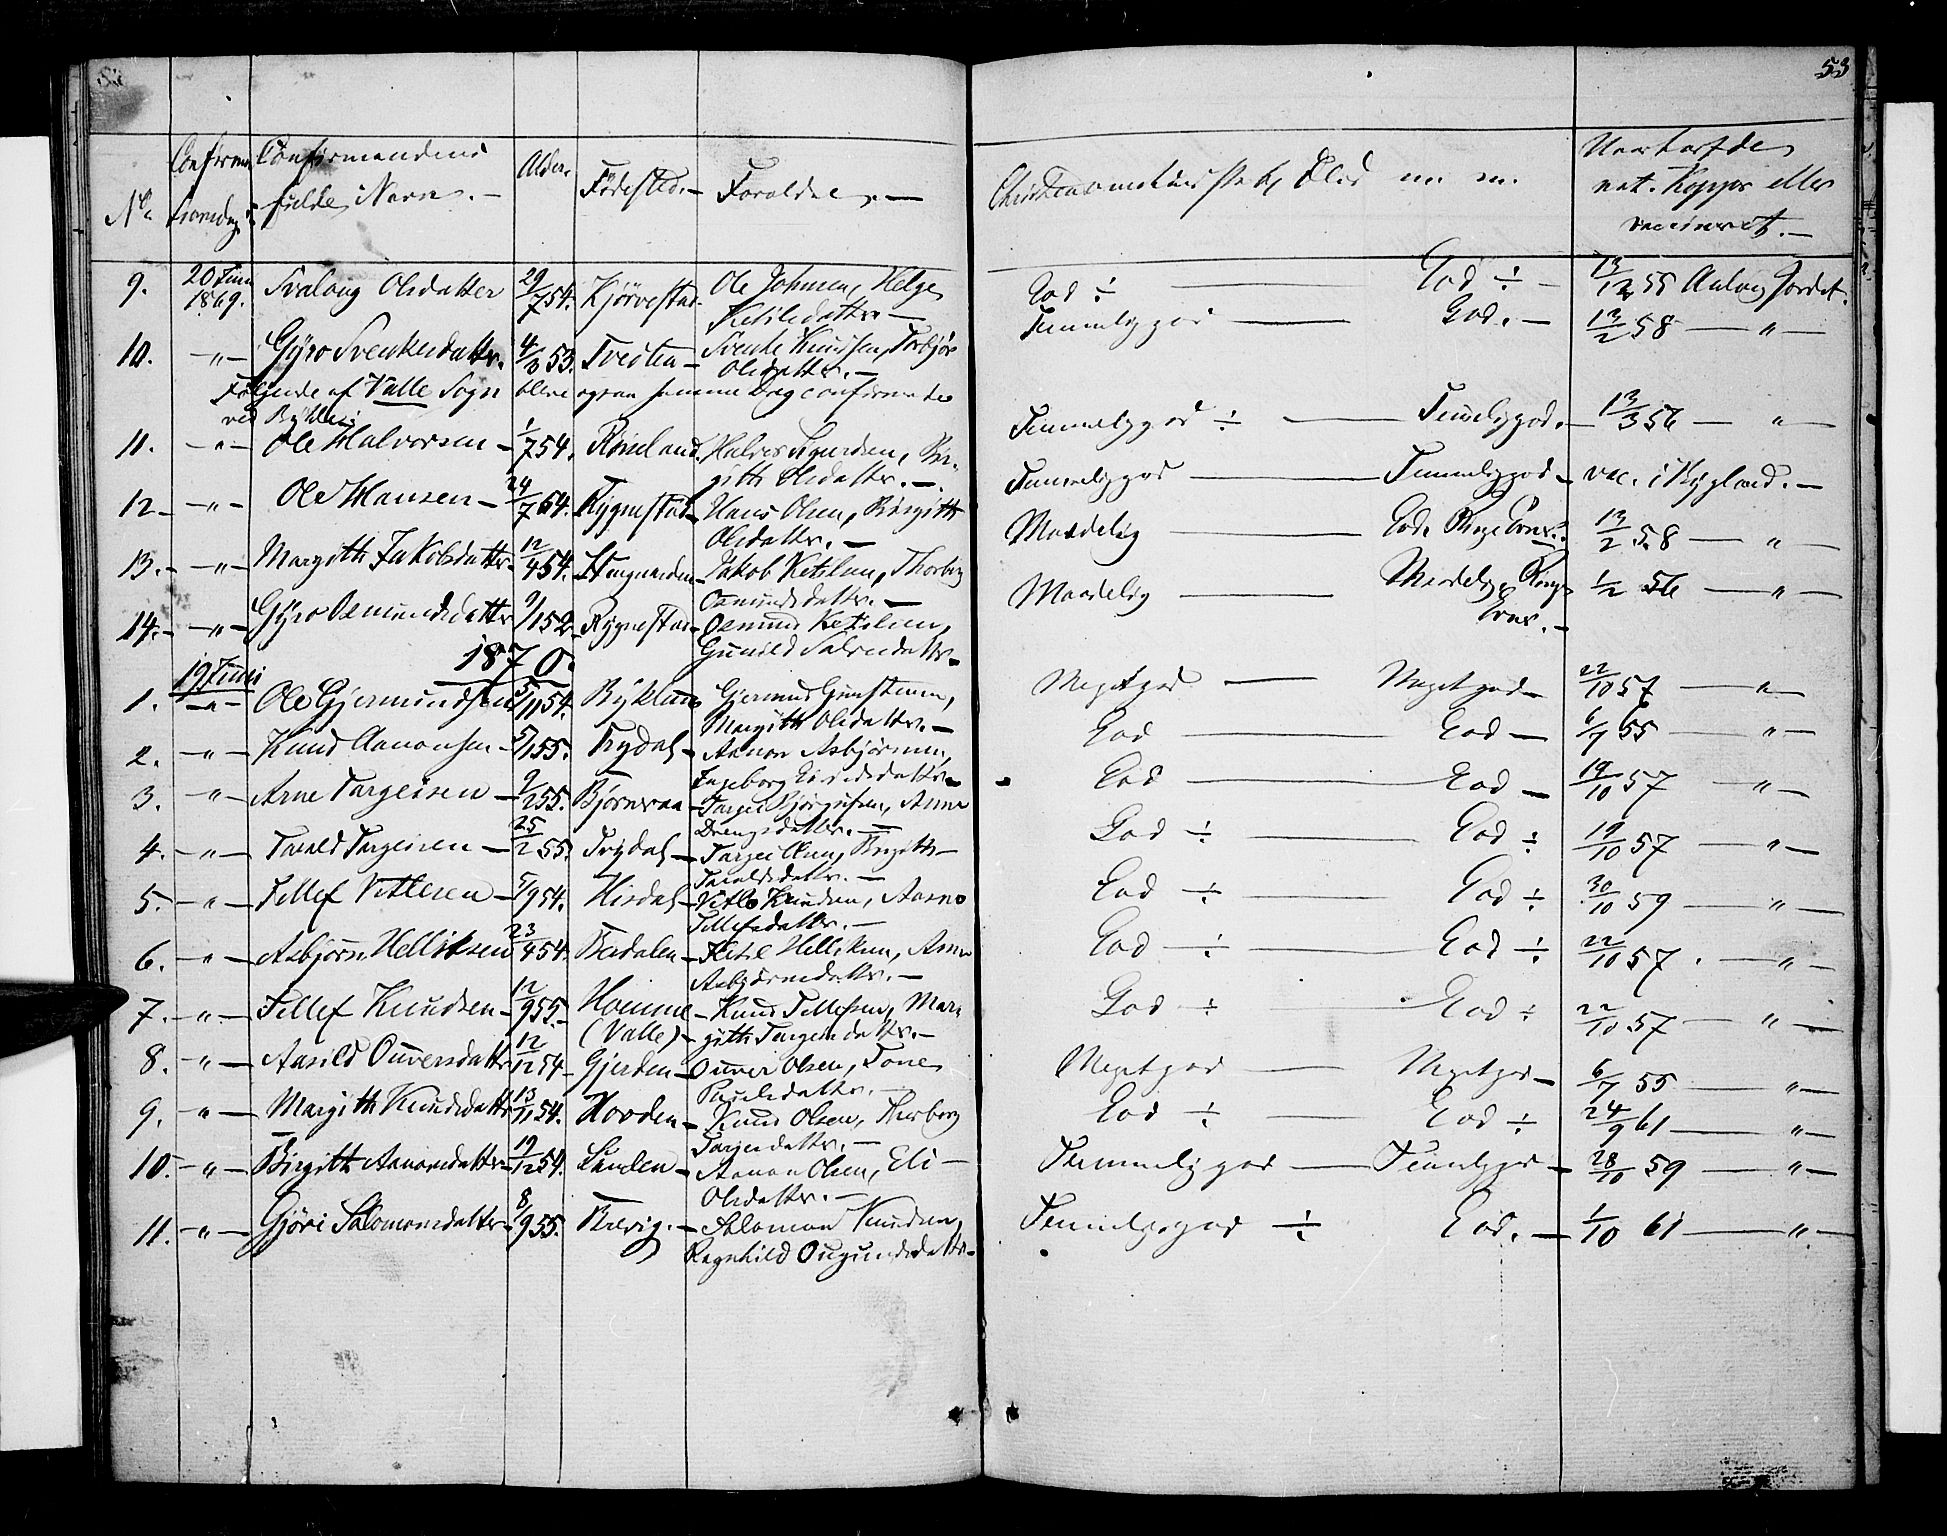 53
No
Confirmationsdag.
Confirmandens fulde Navn. —
Alder.
Fødested. —
Forældre. —
Christendomskundskab, Flid m. m.
Naar havt de nat. Kopper eller vaccineret. —
9. 20 Juni 1869. Svalaug Olsdatter 29/7 54. Kjörvestad. Ole Johnsen, Helge Ketilsdatter — God ÷ — God ÷ — 13/12 55 Aalvig fordet.
10. —〃— Gyro Svenkesdattr. 4/3 53. Tveiten — Svenke Knudsen, Torbjör Olsdattr. — Temmeliggod — God. — 13/2 58 — 〃 —
Følgende af Valle Sogn bleve ogsaa samme Dag confirmerede
ved Bykle:
11. —〃— Ole Halvorsen — 1/7 54. Rømeland. Halvor Sigurdsen, Birgith Olsdattr. — Temmeliggod ÷ — Temeliggod. — 13/3 56 — 〃 —
12 — 〃 — Ole Hansen — 24/7 64. Rygnestad — Hans Olsen, Birgith Olsdattr. — Temmeliggod — Temmeliggod — vac. i Hygland. —
13. — 〃 — Margith Jakobsdattr 12/4 54. Jakob Ketilsen, Thorborg Osmundsdattr. — Maadelig — God. 13/2 58 — 〃 —
14. — 〃 — Gyro Osmundsdatter 9/1 52 Rygnestad — Osmund Ketilsen, Gunild Salvesdattr — Maadelig — Maadelig. 1/2 56 — 〃 —
1870.
19 Juni
1. —〃— Ole Gjermundsen 5/11 54. Byklum Gjermund Gunstensen, Margith Olsdattr. — Megetgod — Megetgod — 22/10 57 — 〃 —
2. — 〃 — Knud Aanonsen — 5/1 55. Trydal — Aanon Asbjörnsen, Ingeborg Eivindsdattr — God — God — 6/7 55 — 〃 —
3. — 〃 — Arne Targeisen — 9/2 55. Bjørneraa — Targei Bjørgufsen, Anne Drengsdattr. — God — God — 19/10 57 — 〃 —
4. — 〃 — Tarald Targeisen — 25/2 55. Trydal — Targei Olsen, Birgith Taraldsdattr. — God ÷ — God ÷ 19/10 57 — 〃 —
5. — 〃 — Tellef Vetlesen — 5/9 54. Hisdal — Vetle Knudsen, Aasne Tellefsdattr. — God ÷ — God ÷ 30/10 59 — 〃 —
6. — 〃 — Asbjörn Helliksen 23/4 54. Berdalen — Ketil Helliksen, Anne Asbjörnsdattr. — God ÷ — God ÷ 22/10 57. — 〃 —
7. — 〃 — Tellef Knudsen — 12/9 55. — Homme (Valle) — Knud Tellefsen, Margith Targeisdattr. — God ÷ — God ÷ 22/10 57 — 〃 —
8. — 〃 — Aasild Ouversdattr 12/12 54 — Gjerden — Ouver Olsen, Tone Paulsdattr. — Megetgod — Megetgod — 6/7 55 — 〃 —
9. 〃 — Margith Knudsdattr 13/11 54. Hovden — Knud Olsen, Thorborg Targeisdattr. — God ÷ — God ÷ 24/9 61 — 〃 —
10. — 〃 — Birgith Aanonsdattr — 19/12 54. Landen — Aanon Olsen, Eli — Olsdattr. — Temmeliggod — Temeliggod — 28/10 59 — 〃 —
11. — 〃 — Gjöri Salomonsdattr — 8/9 55. Breivig. — Salomon Knudsen, Ragnhild Ougundsdattr — Temmeliggod ÷ God. — 1/10 61 — 〃 —